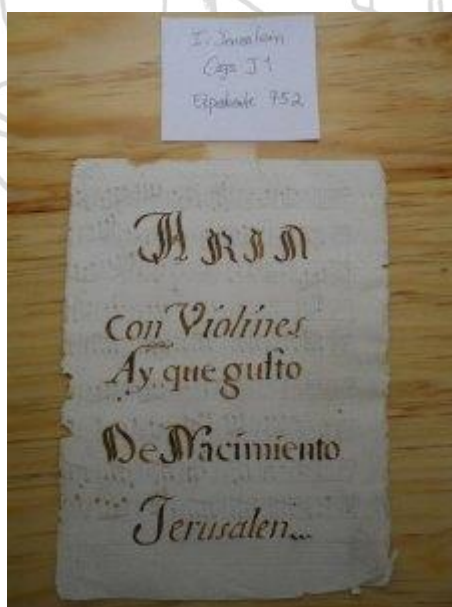 I. Jerusalem
Caja J1
Expediente 752
ARIA
Con Violines
Ay que gusto
De Nacimiento
Jerusalen...